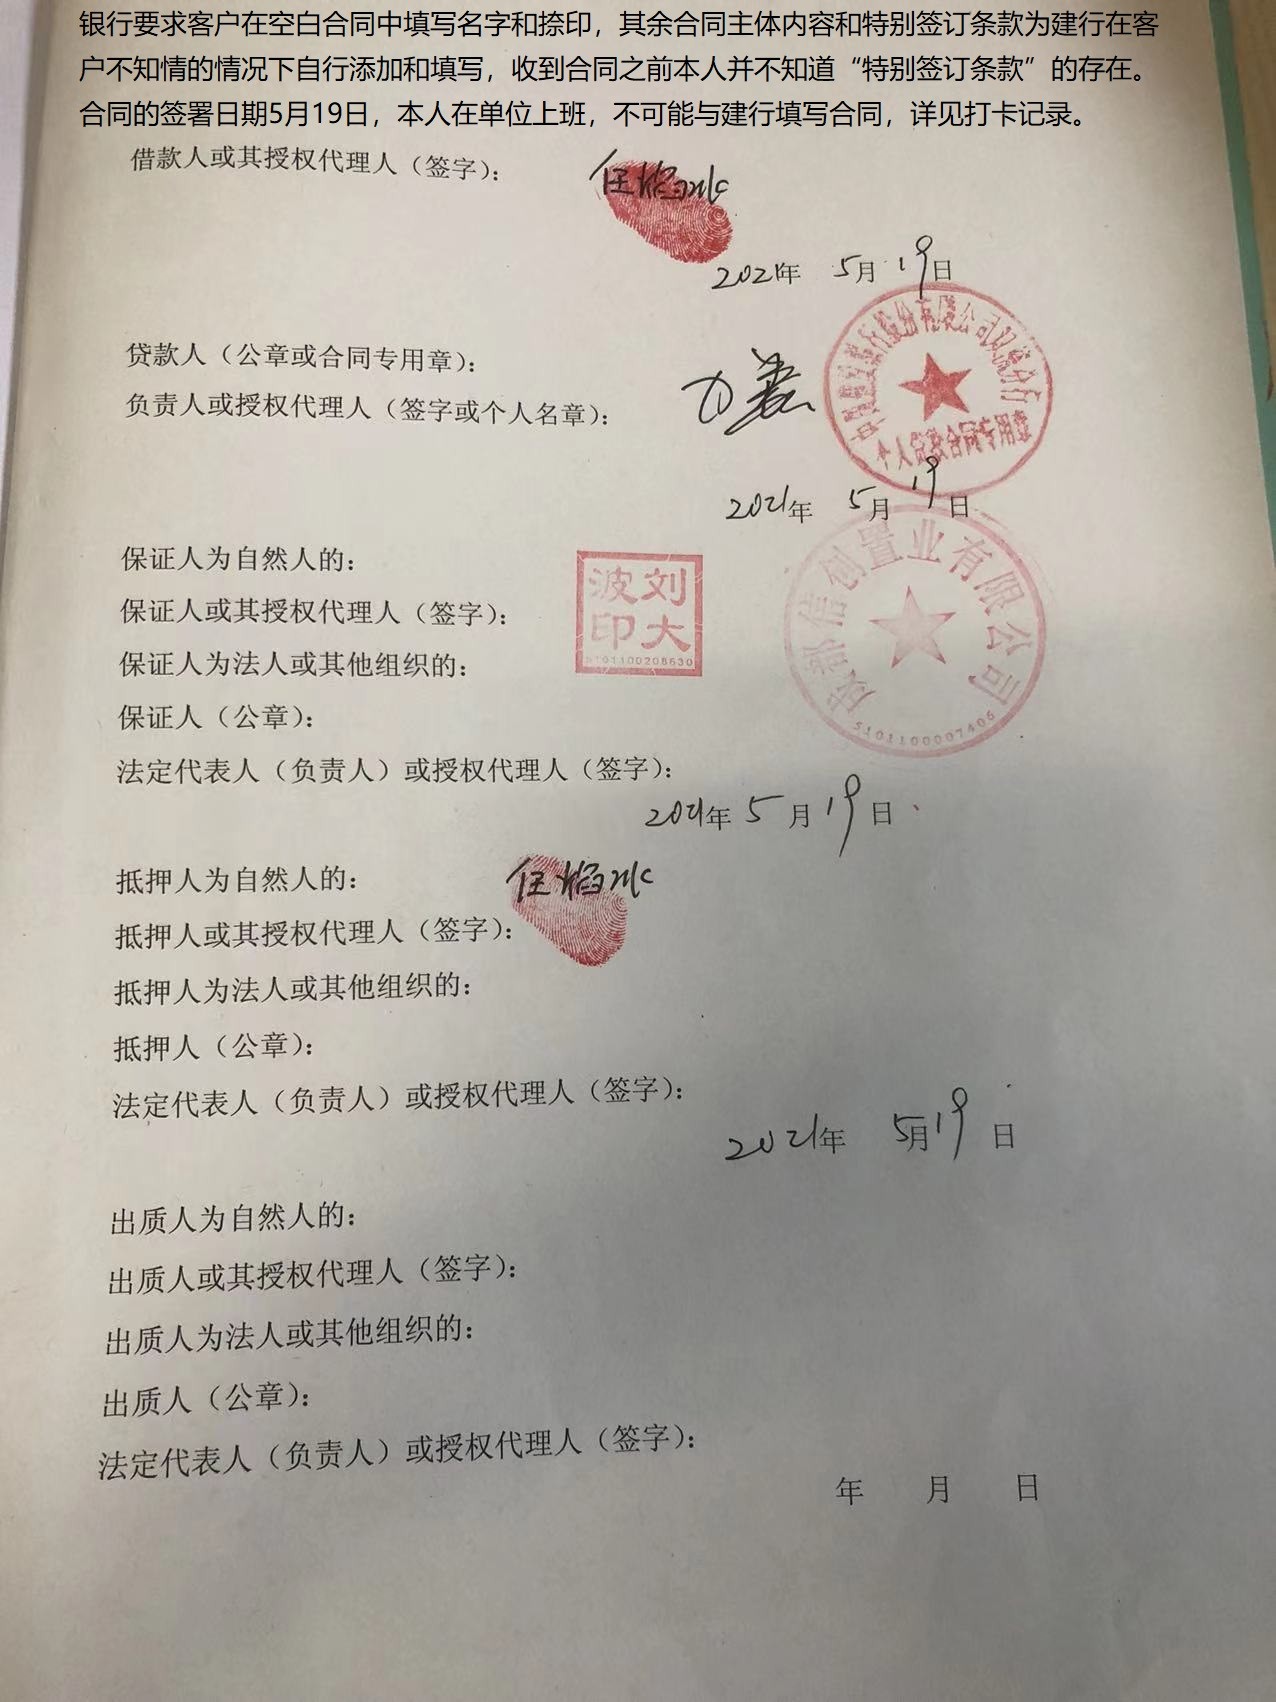 银行要求客户在空白合同中填写名字和捺印，其余合同主体内容和特别签订条款为建行在客
户不知情的情况下自行添加和填写，收到合同之前本人并不知道“特别签订条款”的存在。
合同的签署日期5月19日，本人在单位上班，不可能与建行填写合同，详见打卡记录。
借款人或其授权代理人（签字）：
2021年 5月 19日
贷款人（公章或合同专用章）：
负责人或授权代理人（签字或个人名章）：
个人贷款合同专用章
2021年 5月 19日
保证人为自然人的：
刘大波印
5101100208630
成都信创置业有限公司
5101100007406
保证人或其授权代理人（签字）：
保证人为法人或其他组织的：
保证人（公章）：
法定代表人（负责人）或授权代理人（签字）：
2021年 5月 19日
抵押人为自然人的：
抵押人或其授权代理人（签字）：
抵押人为法人或其他组织的：
抵押人（公章）：
法定代表人（负责人）或授权代理人（签字）：
2021年 5月19日
出质人为自然人的：
出质人或其授权代理人（签字）：
出质人为法人或其他组织的：
出质人（公章）：
法定代表人（负责人）或授权代理人（签字）：
年 月 日